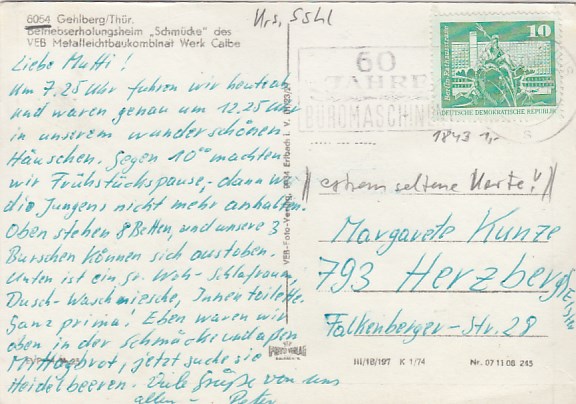 6054 Gehlberg/Thür.
Betriebserholungsheim „Schmücke" des
VEB Metalleichtbaukombinat Werk Calbe
Liebe Mutti!
Um 7.25 Uhr fuhren wir heute ab
und waren genau um 12.25 Uhr
in unserem wunderschönen
Häuschen. Gegen 10⁰⁰ machten
wir Frühstückspause, dann war
die Jungens nicht mehr anhalten.
Oben stehen 8 Betten, und unsere 3
Burschen können sich austoben.
Unten ist ein gr. Woh-Schlafraum
Dusch-Waschnische, Innentoilette.
Ganz prima! Eben waren wir
oben in der Schmücke und aßen
Mittagbrot, jetzt suche sie
Heidelbeeren. Viele Grüße von uns
allen - Peter
VEB-Foto-Verlag, 9934 Erlbach i. V.
10
DEUTSCHE DEMOKRATISCHE REPUBLIK
60
JAHRE
BÜROMASCHINEN
1843 1,-
// extrem seltene Karte! //
Margarete Kunze
793 Herzberg/E
Falkenberger-Str. 28
III/18/197 K 1/74
Nr. 07 11 08 245